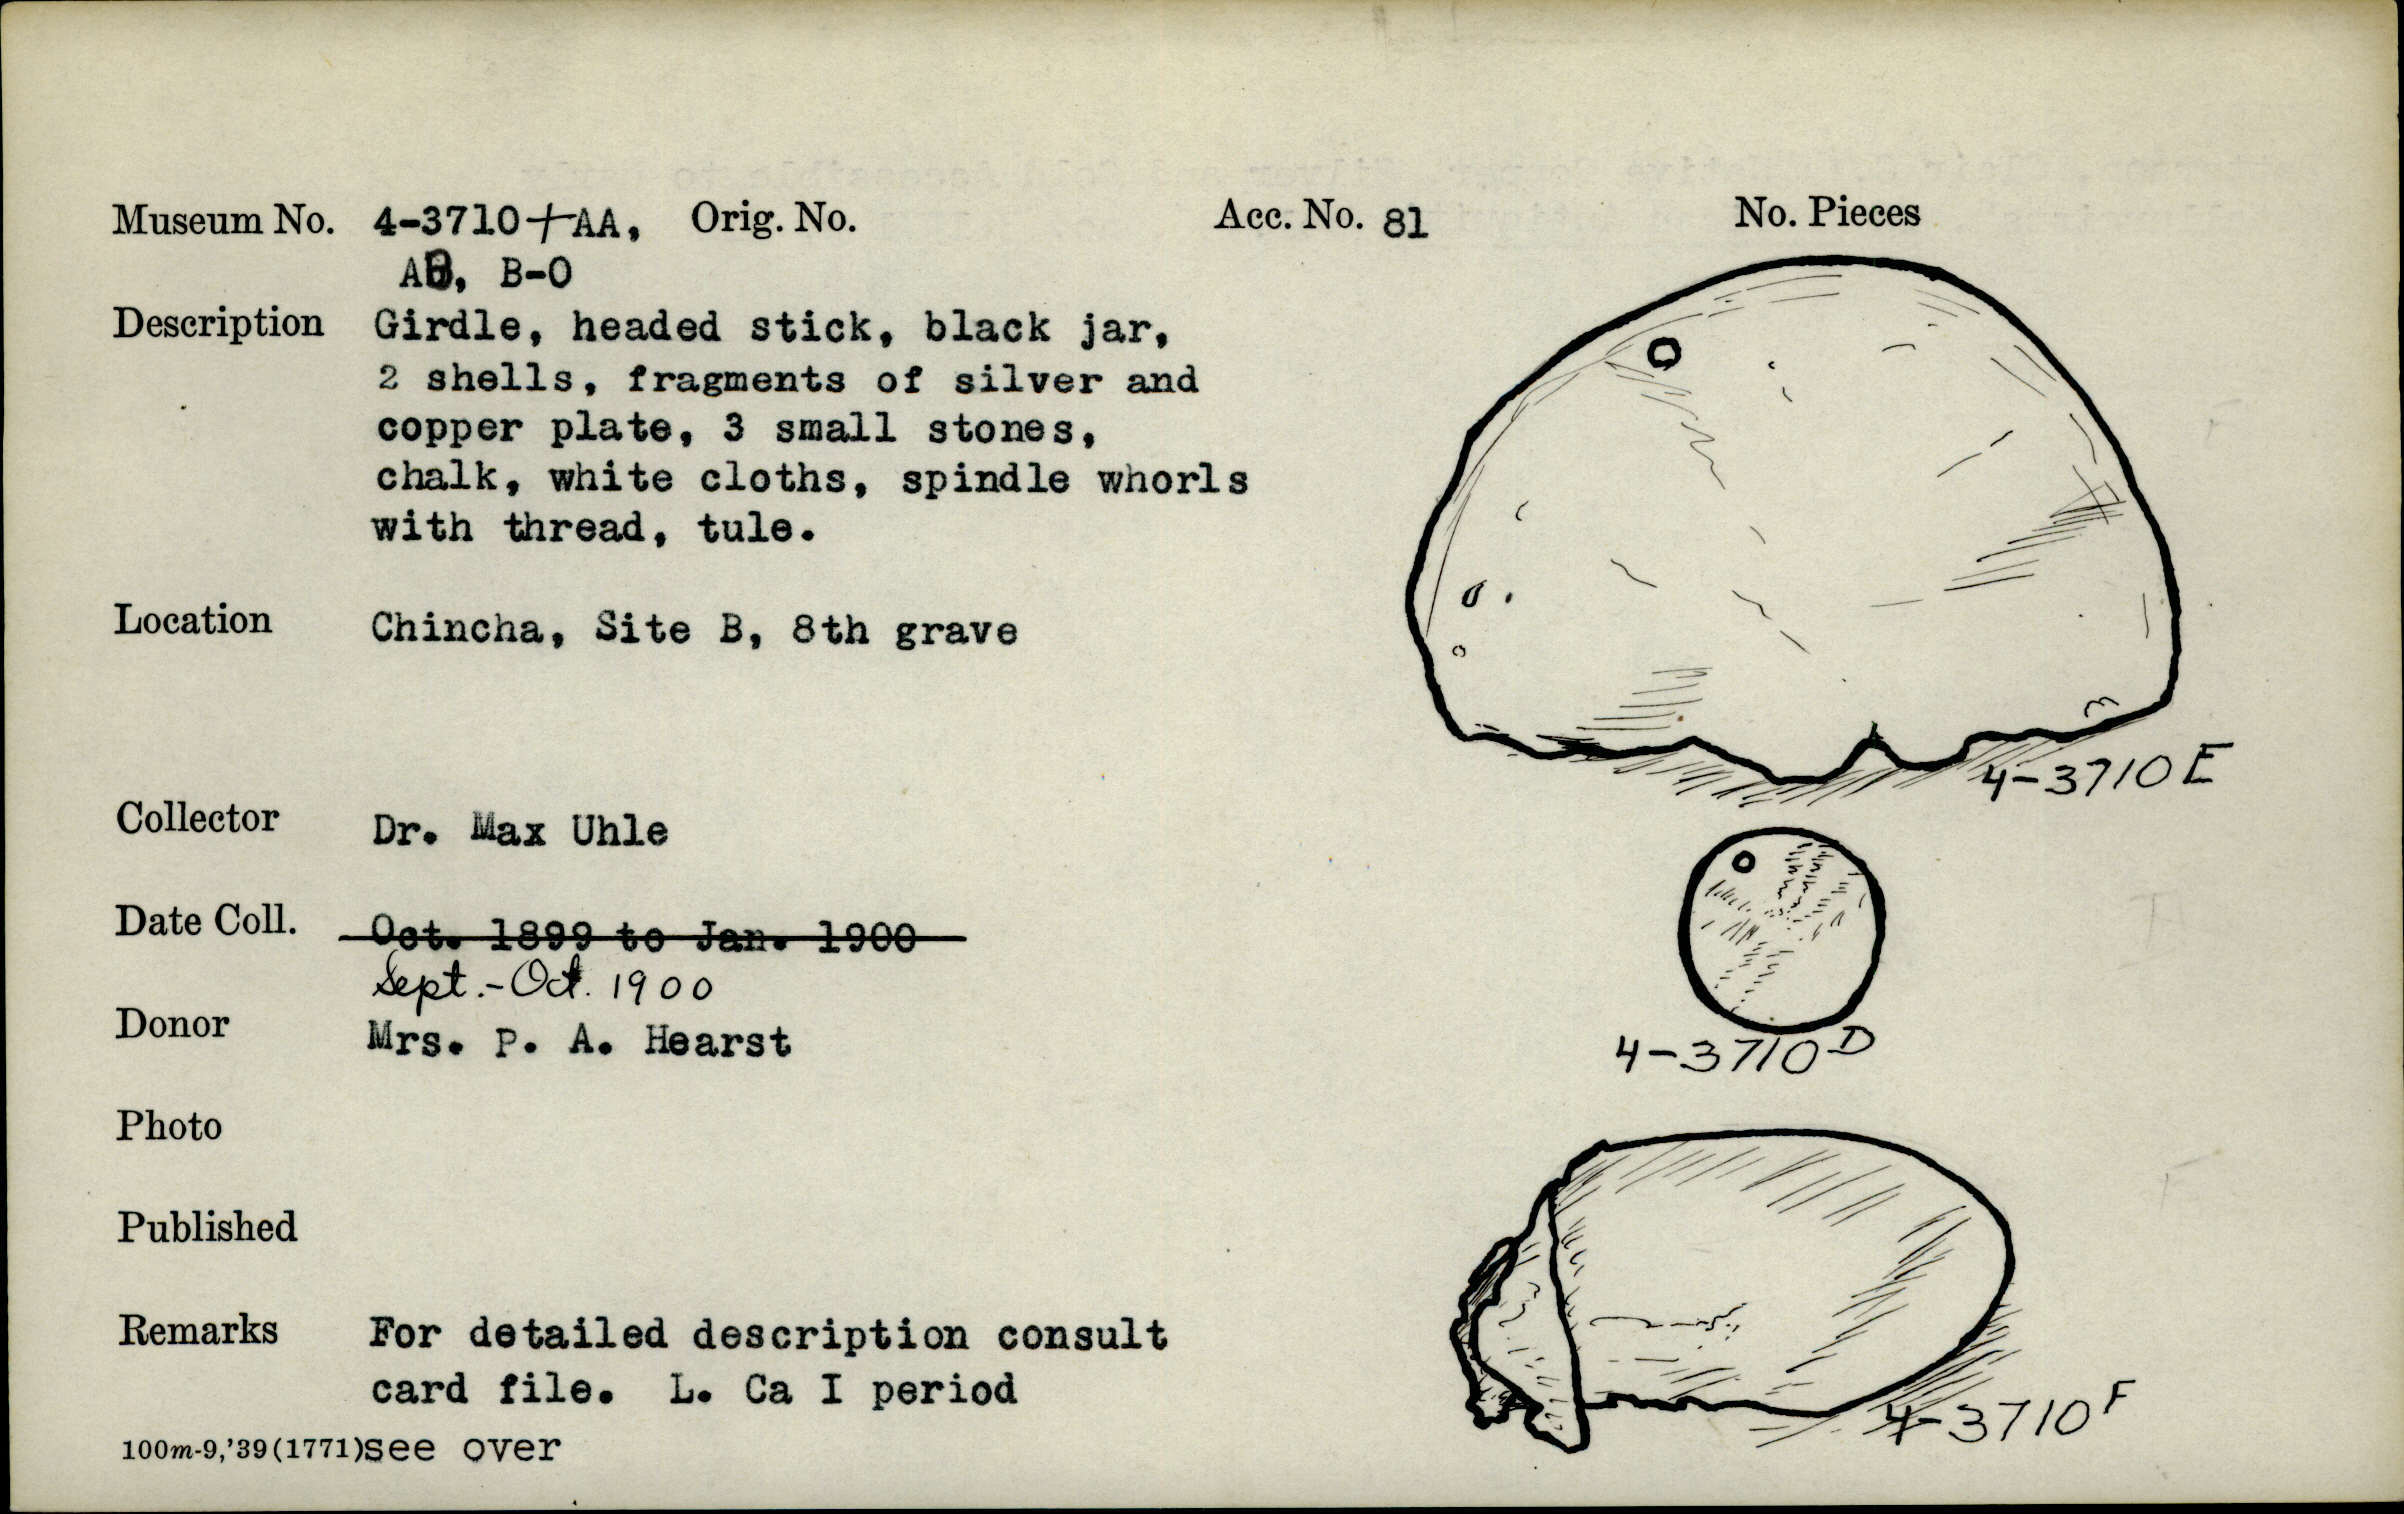 Museum No. 4-3710+AA, Orig. No. Acc. No. 81 No. Pieces
AB, B-O
Description Girdle, headed stick, black jar,
2 shells, fragments of silver and
copper plate, 3 small stones,
chalk, white cloths, spindle whorls
with thread, tule.
Location Chincha, Site B, 8th grave
4-3710 E
Collector Dr. Max Uhle
Date Coll. Oct. 1899 to Jan. 1900
Sept.-Oct. 1900
Donor Mrs. P. A. Hearst
4-3710 D
Photo
Published
Remarks For detailed description consult
card file. L. Ca I period
4-3710 F
100m-9,'39(1771)see over